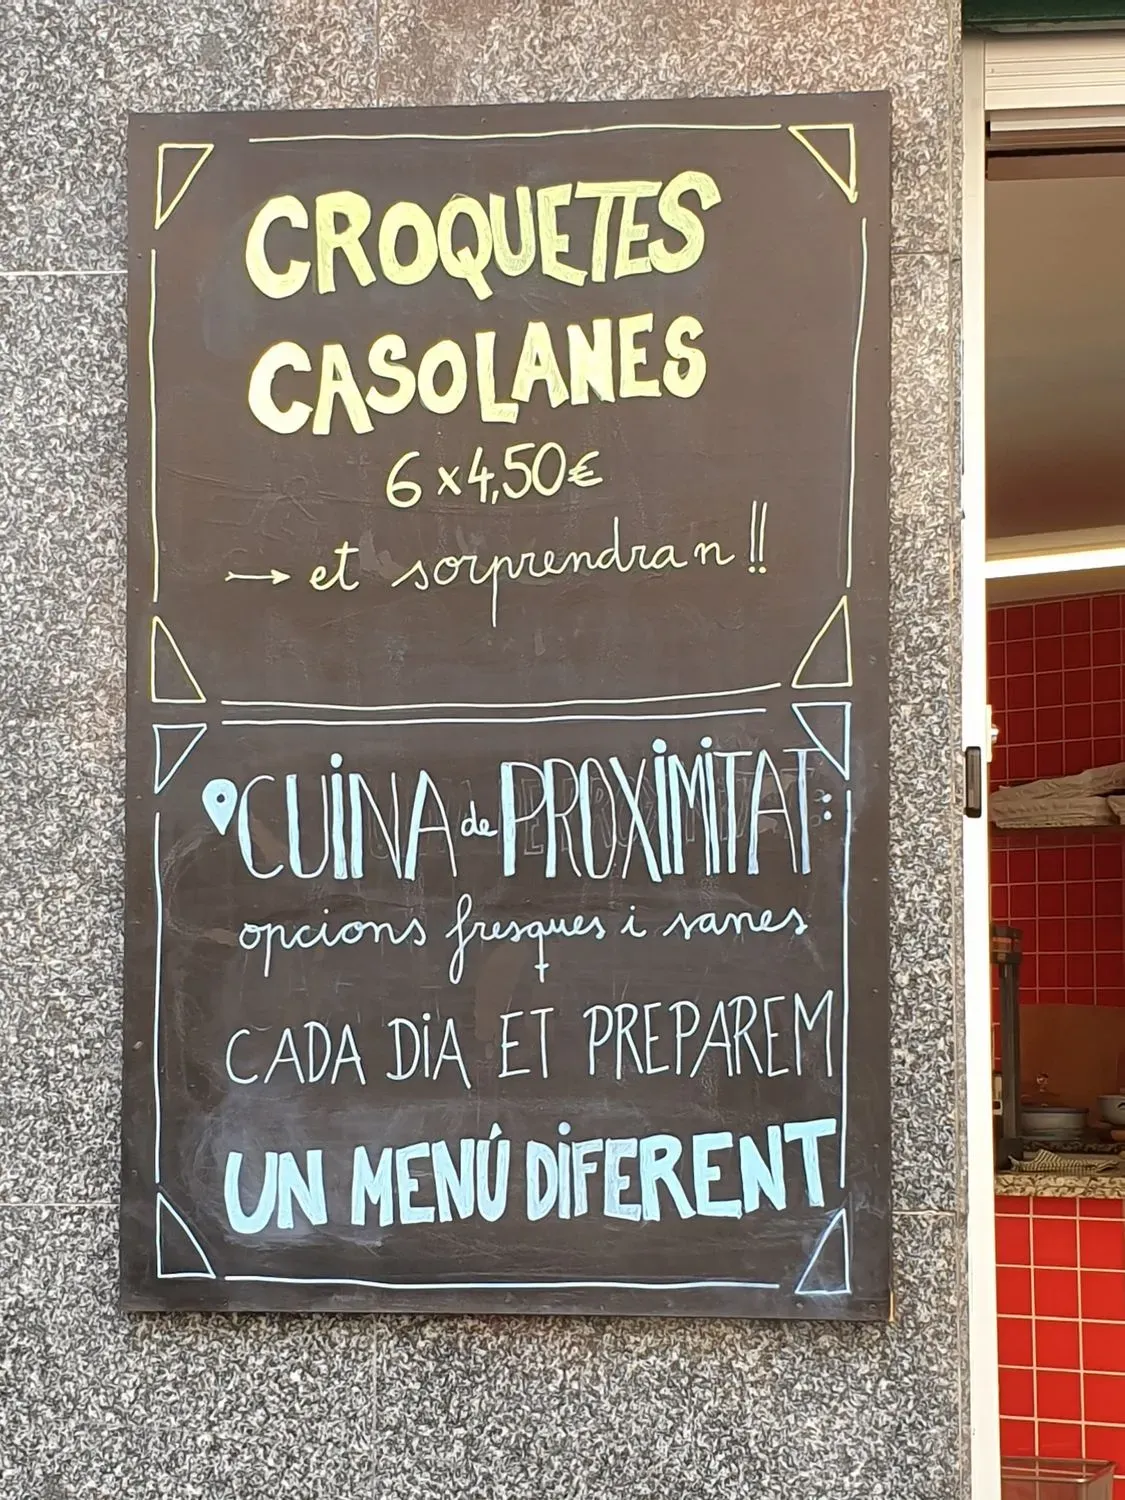 CROQUETES
CASOLANES
6 x 4,50€
→ et sorprendran!!
CUINA de PROXIMITAT:
opcions fresques i sanes
CADA DIA ET PREPAREM
UN MENÚ DIFERENT